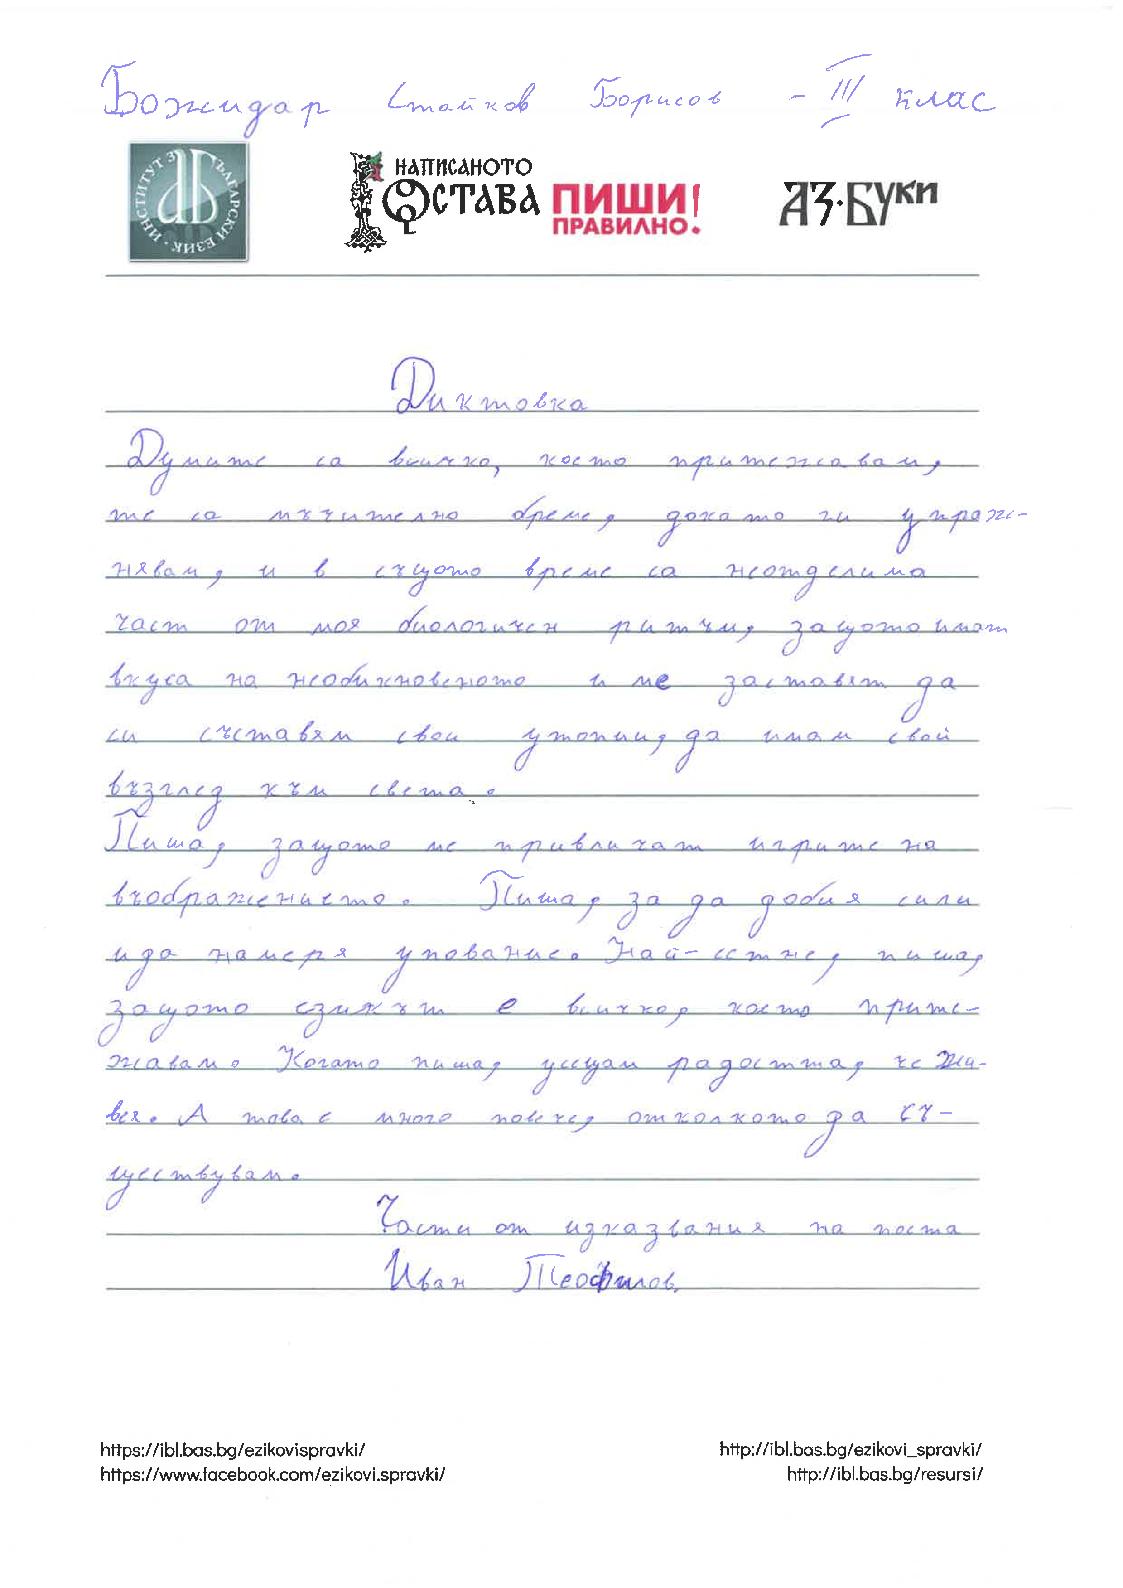 Божидар Стайков Борисов - III клас
ИНСТИТУТ ЗА БЪЛГАРСКИ ЕЗИК
НАПИСАНОТО ОСТАВА ПИШИ! ПРАВИЛНО.
АЗ·БУКИ
Диктовка
Думите са всичко, което притежавам,
те са мъчително бреме, докато ги упраж-
нявам, и в същото време са неотделима
част от моя биологичен ритъм, защото имат
вкуса на необикновеното и ме заставят да
си съставям свои утопии, да имам свой
възглед към света.
Пиша, защото ме привличат игрите на
въображението. Пиша, за да добия сили
и да намеря упование. Най-сетне, пиша,
защото езикът е всичко, което прите-
жавам. Когато пиша, усещам радостта, че жи-
вея. А това е много повече, отколкото да съ-
ществувам.
Части от изказвания на поета
Иван Теофилов.
https://ibl.bas.bg/ezikovispravki/ http://ibl.bas.bg/ezikovi_spravki/
https://www.facebook.com/ezikovi.spravki/ http://ibl.bas.bg/resursi/